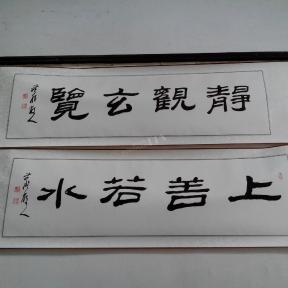 靜觀玄覽
上善若水